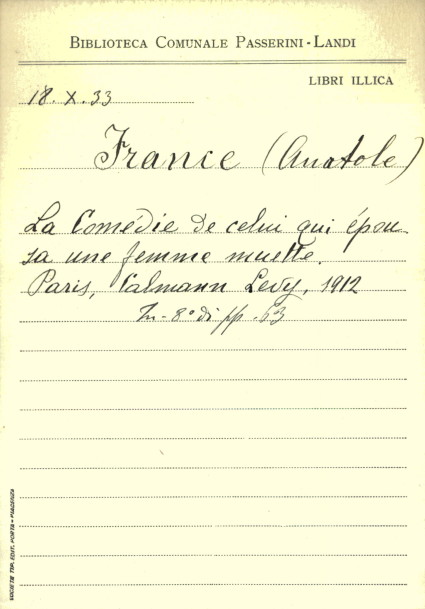 BIBLIOTECA COMUNALE PASSERINI-LANDI
LIBRI ILLICA
18. X. 33
France (Anatole)
La Comédie de celui qui épou-
sa une femme muette.
Paris, Calmann Levy, 1912
In-8° di pp. 63
SOCIETÀ TIP. EDIT. PORTA - PIACENZA